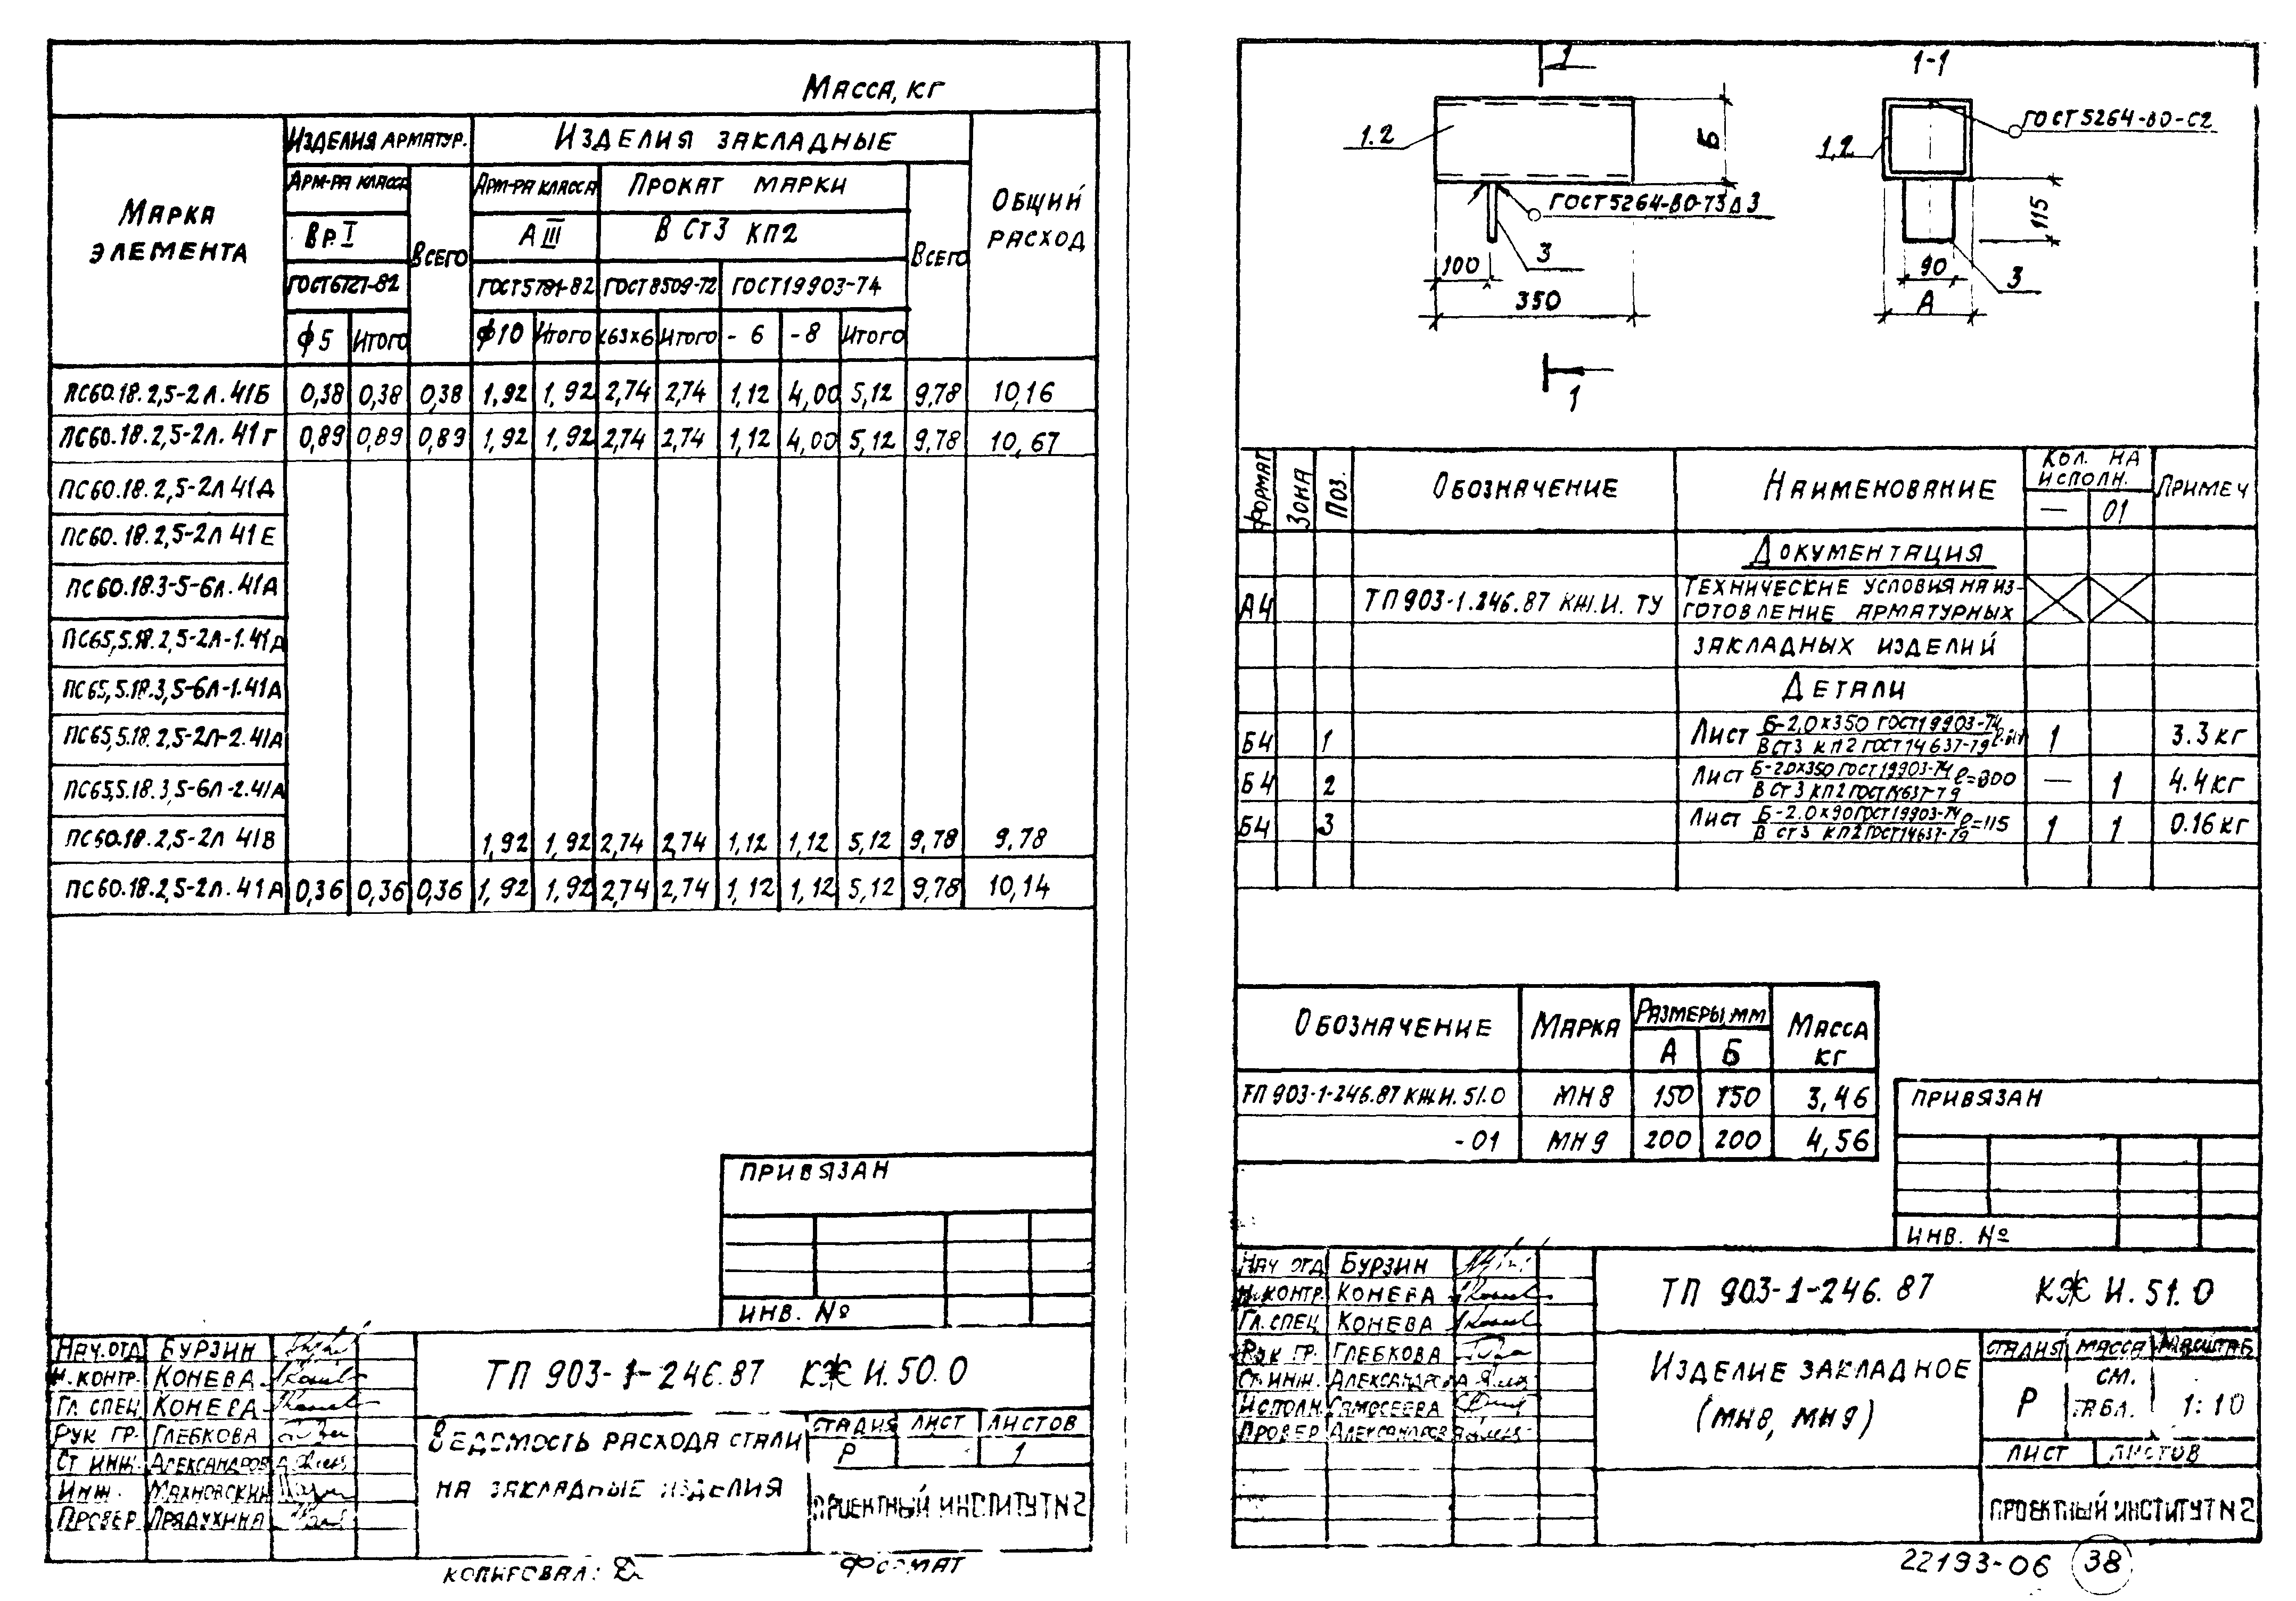 Масса, кг
Марка элемента
Изделия арматур.
Изделия закладные
Общий расход
Арм-ра класса
Всего
Арм-ра класса
Прокат марки
Всего
Вр I
А III
В Ст3 кп2
ГОСТ 6727-82
ГОСТ 5781-82
ГОСТ 8509-72
ГОСТ 19903-74
ф 5 Итого ф10 Итого 63х6 Итого - 6 - 8 Итого
ПС60.18.2,5-2л.41Б 0,38 0,38 0,38 1,92 1,92 2,74 2,74 1,12 4,00 5,12 9,78 10,16
ПС60.18.2,5-2л.41Г 0,89 0,89 0,89 1,92 1,92 2,74 2,74 1,12 4,00 5,12 9,78 10,67
ПС60.18.2,5-2л 41Д
ПС60.18.2,5-2л 41Е
ПС60.18.3-5-6л.41А
ПС65,5.18.2,5-2л-1.41Д
ПС65,5.18.3,5-6л-1.41А
ПС65,5.18.2,5-2л-2.41А
ПС65,5.18.3,5-6л-2.41А
ПС60.18.2,5-2л 41В 1,92 1,92 2,74 2,74 1,12 1,12 5,12 9,78 9,78
ПС60.18.2,5-2л.41А 0,36 0,36 0,36 1,92 1,92 2,74 2,74 1,12 1,12 5,12 9,78 10,14
Привязан
Инв. №
Нач.отд Бурзин
Н.контр. Конева
Гл. спец Конева
Рук гр. Глебкова
Ст инж. Александрова
Инж. Махновский
Провер Прядухина
ТП 903-1-246.87 КЖ И.50.0
Ведомость расхода стали
на закладные изделия
Стадия Лист Листов
Р 1
Проектный институт N2
Копировал:
Формат
1
1-1
1.2
Б
ГОСТ 5264-80-Т3 Δ 3
3
100
350
1
ГОСТ 5264-80-С2
1,2
115
90
3
А
Формат
Зона
Поз.
Обозначение
Наименование
Кол. на исполн.
— 01
Примеч
Документация
А4 ТП 903-1.246.87 КЖ.И. ТУ Технические условия на из-
готовление арматурных
закладных изделий
Детали
Б4 1 Лист Б-2.0х350 ГОСТ19903-74 1 3.3 кг
ВСт3 кп2 ГОСТ14637-79
Б4 2 Лист Б-2.0х350 ГОСТ19903-74 ℓ=800 — 1 4.4 кг
ВСт3 кп2 ГОСТ14637-79
Б4 3 Лист Б-2.0х90 ГОСТ19903-74 ℓ=115 1 1 0.16 кг
В Ст3 кп2 ГОСТ14637-79
Обозначение Марка Размеры, мм Масса кг
А Б
ТП 903-1-246.87 КЖ.И.51.0 МН8 150 150 3,46
-01 МН9 200 200 4,56
Привязан
Инв. №
Нач отд Бурзин
Н.контр. Конева
Гл. спец Конева
Рук гр. Глебкова
Ст. инж. Александрова
Исполн. Самосеева
Провер Александрова
ТП 903-1-246.87 КЖ И.51.0
Изделие закладное
(МН8, МН9)
Стадия Масса Масштаб
Р см. табл. 1:10
Лист Листов
Проектный институт N2
22193-06 38